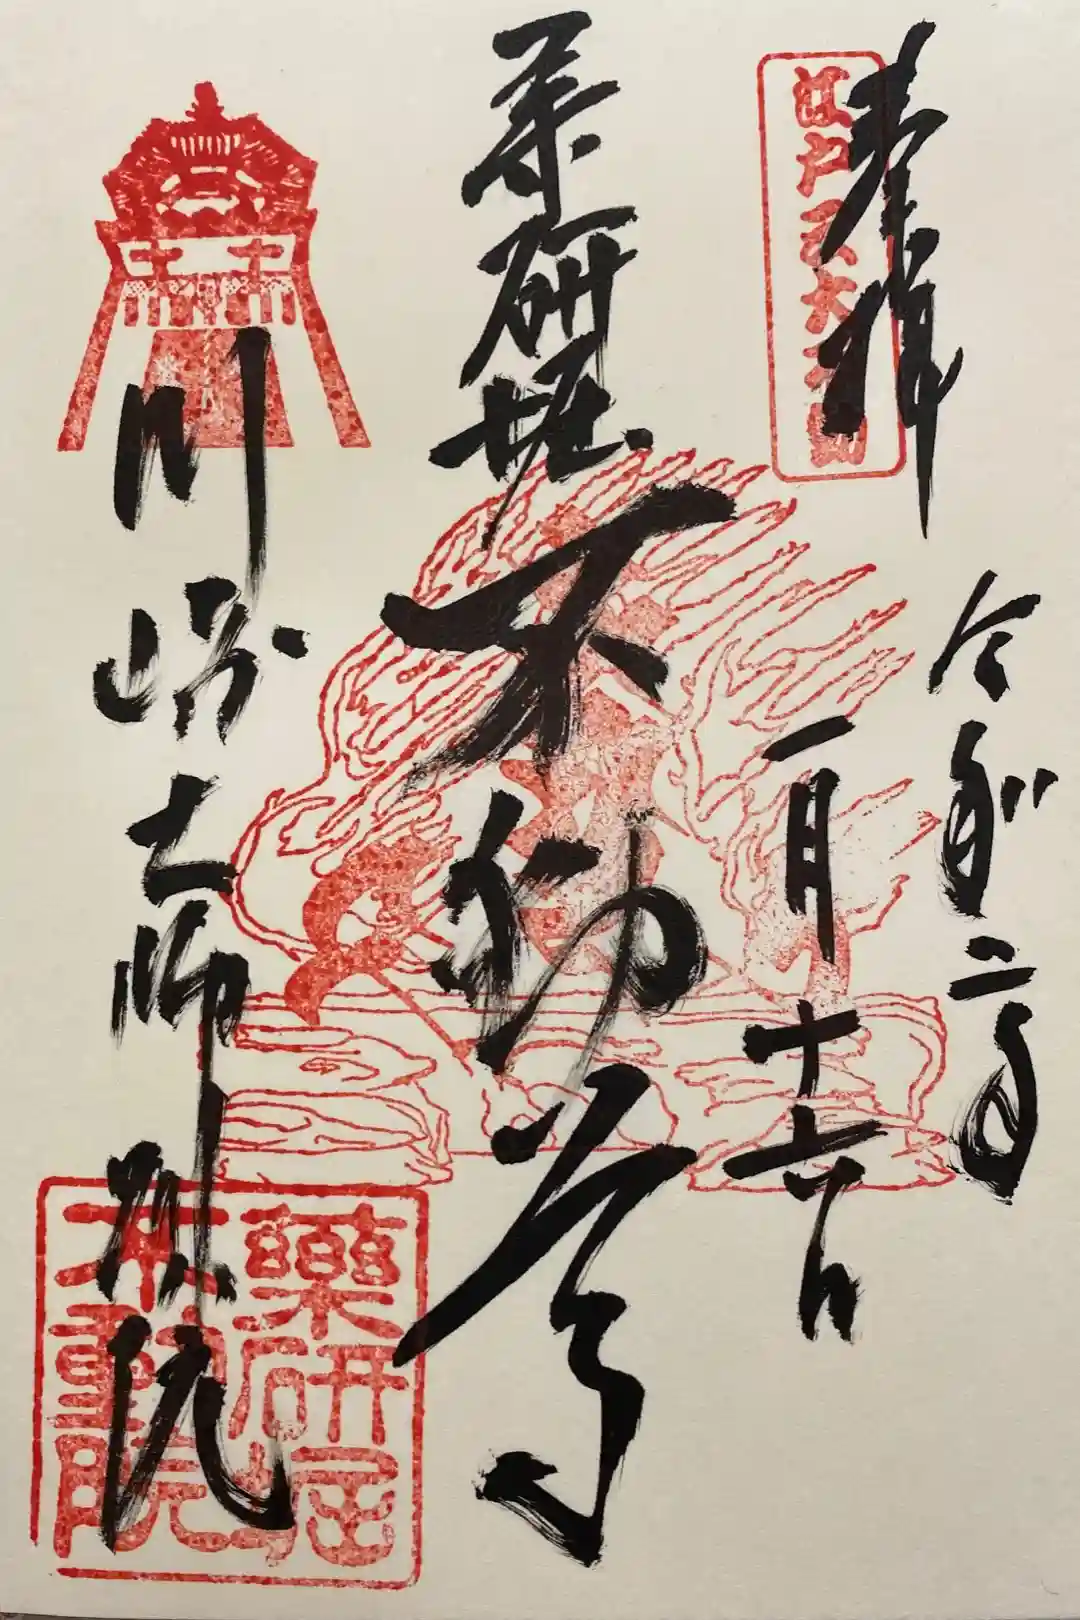 奉拝
江戸三大不動
令和二年
一月十六日
薬研堀
不動尊
川崎大師別院
藥研堀
不動院